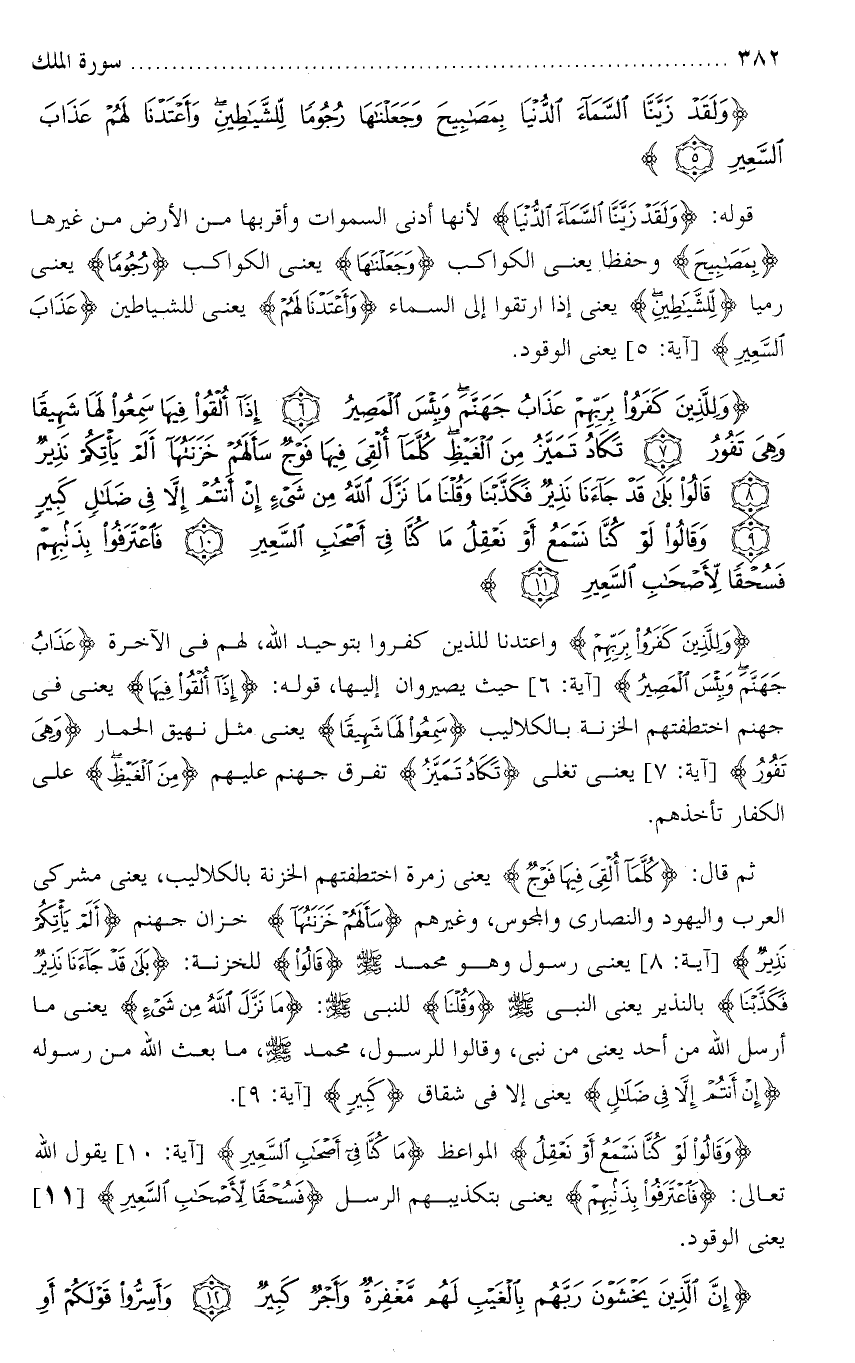 ٣٨٢ ........................................................................ سورة الملك
﴿وَلَقَدْ زَيَّنَّا ٱلسَّمَآءَ ٱلدُّنْيَا بِمَصَـٰبِيحَ وَجَعَلْنَـٰهَا رُجُومًا لِّلشَّيَـٰطِينِۖ وَأَعْتَدْنَا لَهُمْ عَذَابَ
ٱلسَّعِيرِ ٥ ﴾
قوله: ﴿وَلَقَدْ زَيَّنَّا ٱلسَّمَآءَ ٱلدُّنْيَا﴾ لأنها أدنى السموات وأقربها من الأرض من غيرها
﴿بِمَصَـٰبِيحَ﴾ وحفظا يعنى الكواكب ﴿وَجَعَلْنَـٰهَا﴾ يعنى الكواكب ﴿رُجُومًا﴾ يعنى
رميا ﴿لِّلشَّيَـٰطِينِۖ﴾ يعنى إذا ارتقوا إلى السماء ﴿وَأَعْتَدْنَا لَهُمْ﴾ يعنى للشياطين ﴿عَذَابَ
ٱلسَّعِيرِ﴾ [آية: ٥] يعنى الوقود.
﴿وَلِلَّذِينَ كَفَرُوا۟ بِرَبِّهِمْ عَذَابُ جَهَنَّمَۖ وَبِئْسَ ٱلْمَصِيرُ ٦ إِذَآ أُلْقُوا۟ فِيهَا سَمِعُوا۟ لَهَا شَهِيقًا
وَهِىَ تَفُورُ ٧ تَكَادُ تَمَيَّزُ مِنَ ٱلْغَيْظِۖ كُلَّمَآ أُلْقِىَ فِيهَا فَوْجٌ سَأَلَهُمْ خَزَنَتُهَآ أَلَمْ يَأْتِكُمْ نَذِيرٌ
٨ قَالُوا۟ بَلَىٰ قَدْ جَآءَنَا نَذِيرٌ فَكَذَّبْنَا وَقُلْنَا مَا نَزَّلَ ٱللَّهُ مِن شَىْءٍ إِنْ أَنتُمْ إِلَّا فِى ضَلَـٰلٍ كَبِيرٍ
٩ وَقَالُوا۟ لَوْ كُنَّا نَسْمَعُ أَوْ نَعْقِلُ مَا كُنَّا فِىٓ أَصْحَـٰبِ ٱلسَّعِيرِ ١٠ فَٱعْتَرَفُوا۟ بِذَنۢبِهِمْ
فَسُحْقًا لِّأَصْحَـٰبِ ٱلسَّعِيرِ ١١ ﴾
﴿وَلِلَّذِينَ كَفَرُوا۟ بِرَبِّهِمْ﴾ واعتدنا للذين كفروا بتوحيد الله، لهم فى الآخرة ﴿عَذَابُ
جَهَنَّمَۖ وَبِئْسَ ٱلْمَصِيرُ﴾ [آية: ٦] حيث يصيروان إليها، قوله: ﴿إِذَآ أُلْقُوا۟ فِيهَا﴾ يعنى فى
جهنم اختطفتهم الخزنة بالكلاليب ﴿سَمِعُوا۟ لَهَا شَهِيقًا﴾ يعنى مثل نهيق الحمار ﴿وَهِىَ
تَفُورُ﴾ [آية: ٧] يعنى تغلى ﴿تَكَادُ تَمَيَّزُ﴾ تفرق جهنم عليهم ﴿مِنَ ٱلْغَيْظِۖ﴾ على
الكفار تأخذهم.
ثم قال: ﴿كُلَّمَآ أُلْقِىَ فِيهَا فَوْجٌ﴾ يعنى زمرة اختطفتهم الخزنة بالكلاليب، يعنى مشركى
العرب واليهود والنصارى والمجوس، وغيرهم ﴿سَأَلَهُمْ خَزَنَتُهَآ﴾ خزان جهنم ﴿أَلَمْ يَأْتِكُمْ
نَذِيرٌ﴾ [آية: ٨] يعنى رسول وهو محمد ﷺ ﴿قَالُوا۟﴾ للخزنة: ﴿بَلَىٰ قَدْ جَآءَنَا نَذِيرٌ
فَكَذَّبْنَا﴾ بالنذير يعنى النبى ﷺ ﴿وَقُلْنَا﴾ للنبى ﷺ: ﴿مَا نَزَّلَ ٱللَّهُ مِن شَىْءٍ﴾ يعنى ما
أرسل الله من أحد يعنى من نبى، وقالوا للرسول، محمد ﷺ، ما بعث الله من رسوله
﴿إِنْ أَنتُمْ إِلَّا فِى ضَلَـٰلٍ﴾ يعنى إلا فى شقاق ﴿كَبِيرٍ﴾ [آية: ٩].
﴿وَقَالُوا۟ لَوْ كُنَّا نَسْمَعُ أَوْ نَعْقِلُ﴾ المواعظ ﴿مَا كُنَّا فِىٓ أَصْحَـٰبِ ٱلسَّعِيرِ﴾ [آية: ١٠] يقول الله
تعالى: ﴿فَٱعْتَرَفُوا۟ بِذَنۢبِهِمْ﴾ يعنى بتكذيبهم الرسل ﴿فَسُحْقًا لِّأَصْحَـٰبِ ٱلسَّعِيرِ﴾ [١١]
يعنى الوقود.
﴿إِنَّ ٱلَّذِينَ يَخْشَوْنَ رَبَّهُم بِٱلْغَيْبِ لَهُم مَّغْفِرَةٌ وَأَجْرٌ كَبِيرٌ ١٢ وَأَسِرُّوا۟ قَوْلَكُمْ أَوِ